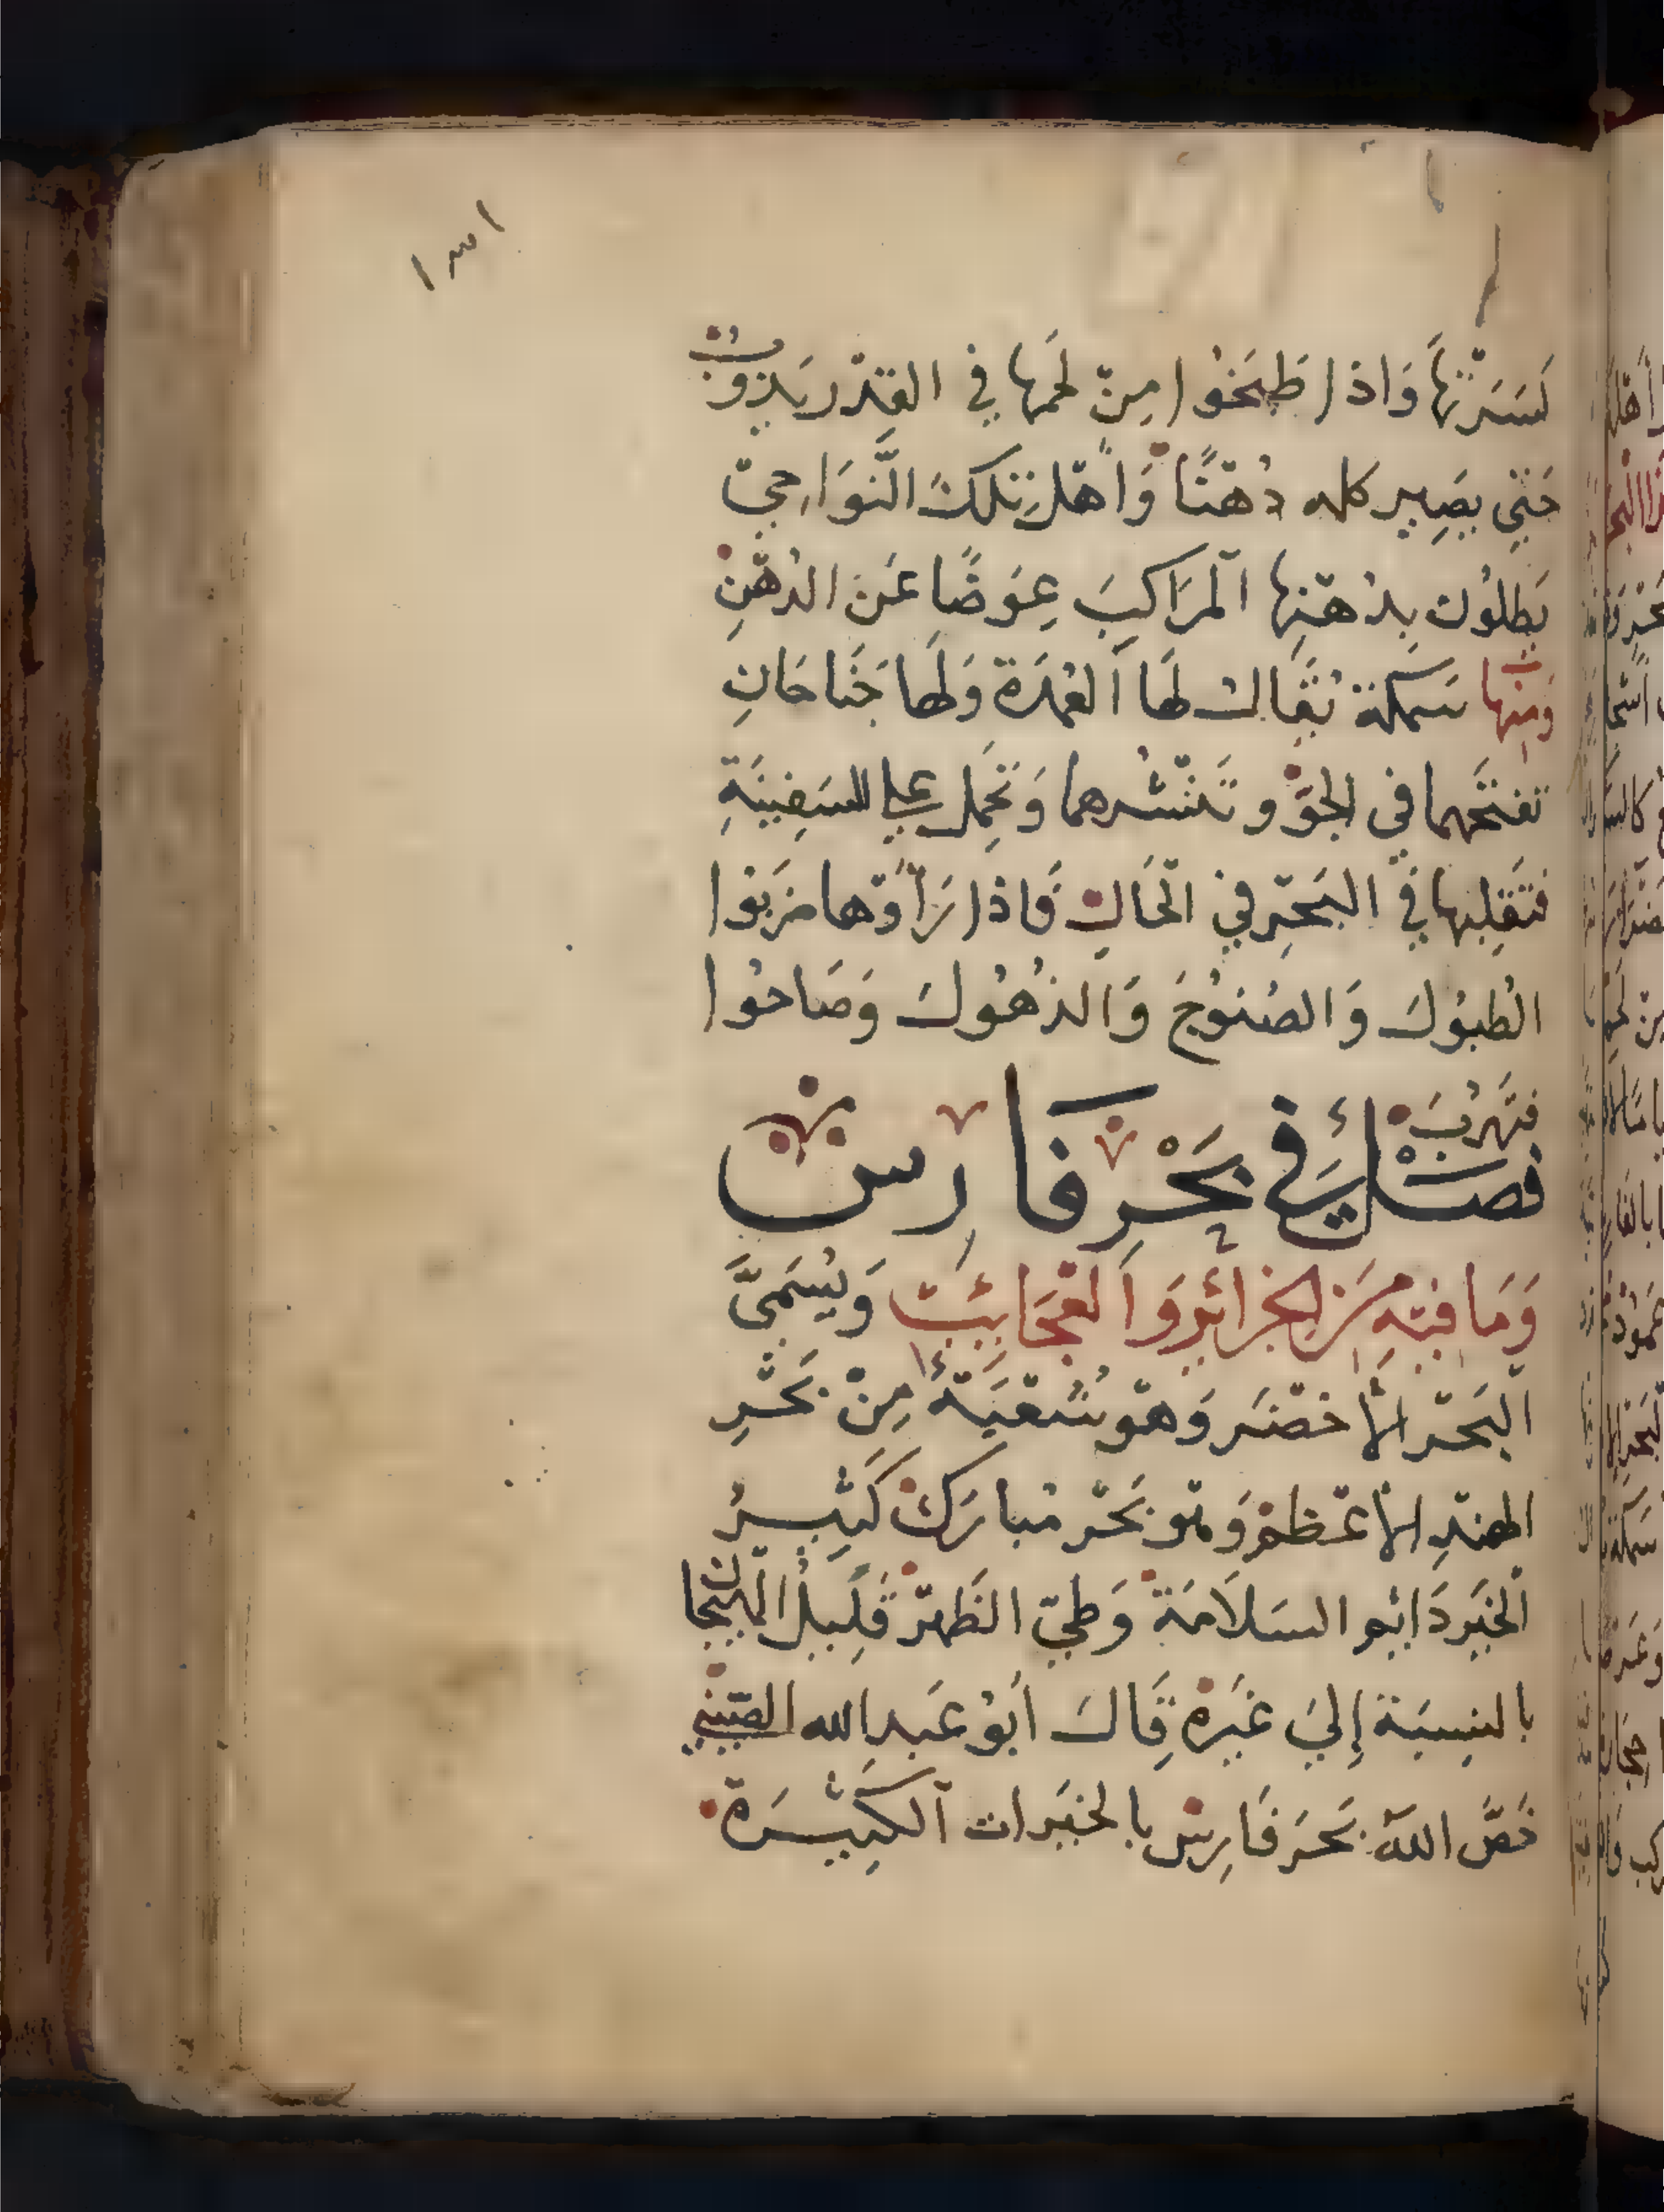 ١٣١
كَسَرَتْهَا وَاذا طَبَخُوا مِنْ لحَمها في القِدْر يَذوُب
حَتي يصَير كله دُهْنًا وَاهْل تلكَ النَّوَاحِيْ
يَطلوُن بِدُهْنِها اَلمرَاكِبَ عِوَضًا عَن الدُهْنِ
وَمِنها سَمكة يُقَال لهَا اَلعُمدَة وَلهَا جَنَاحَانِ
تفتَحهما في الجَوّ و تَنْشُرهما وَتحَمِل علي السَفِينَةِ
فتَقلِبها في البَحْرِ في الْحَالِ فَاذا رَأَوْها ضَرَبُوا
الطبُوُلَ وَالصُنوُجَ وَالدُهُولَ وَصَاحُوا
فتَهرُبَ
فصَـْـل في بَحْرِ فَارِسْ
وَمَا فيْهِ مِنَ الجزَائرِ وَالعَجَائبَ وَيُسَمىَّ
اَلبَحْر الأخضَر وَهْو شُعْبَةٌ مِنْ بَحْرِ
الهندِ الأعْظم وَهْو بَحْر مُبارَكْ كَثيِـرُ
اَلخَيرِ دَائمِ السَلَامَةْ وَطيْ الظَهْرْ قَلِيلُ الهَيَجا
بالنِسبَة إِلَي غَيرِهْ قَالَ أبُو عَبدِ الله الصِّيني
خَصَّ اللهُ بَحَر فَارِسْ بالخيَرات اَلكَثِيـرَة